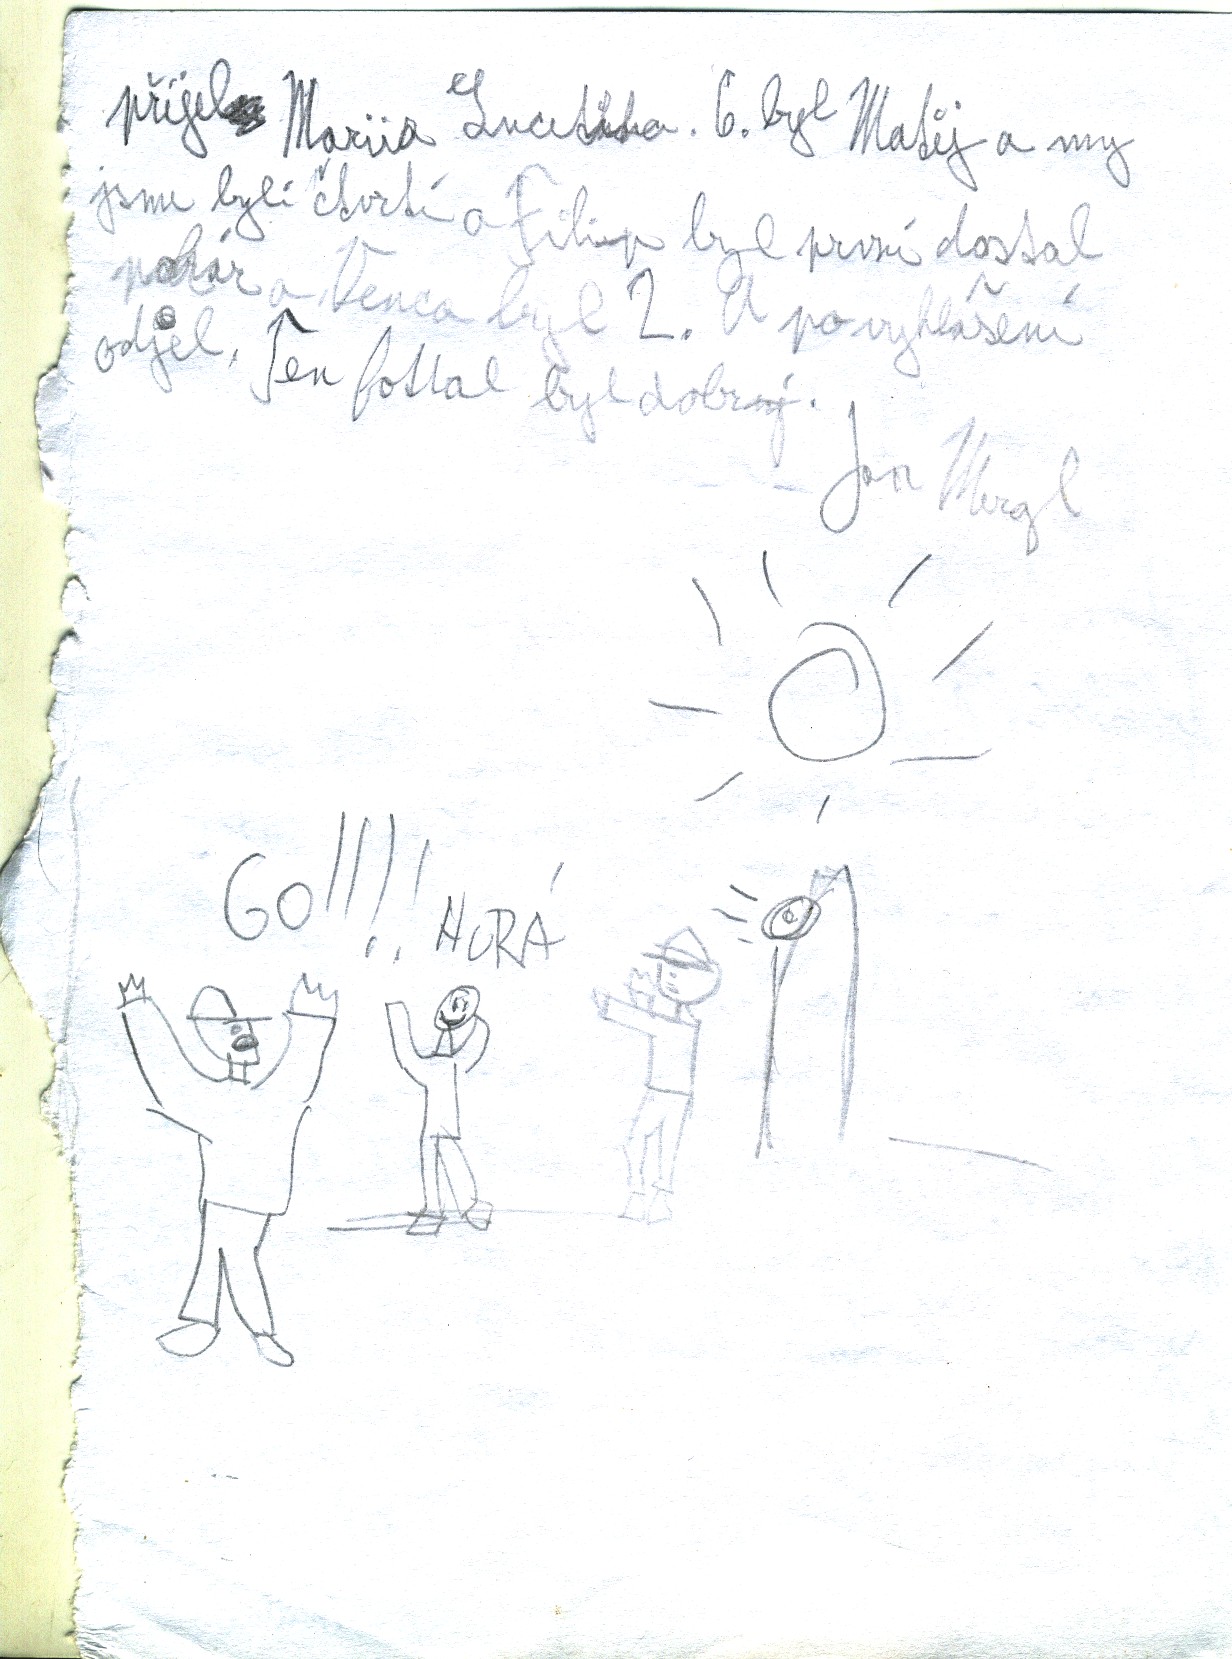 přijel Mariia Lucetka. 6. byl Matěj a my
jsme byli čtvrtí a Filip byl první dostal
pohár a Venca byl 2. A po vyhlášení
odjel. Ten fotbal byl dobrý.
Jan Mergl
GO!!!!
HURÁ